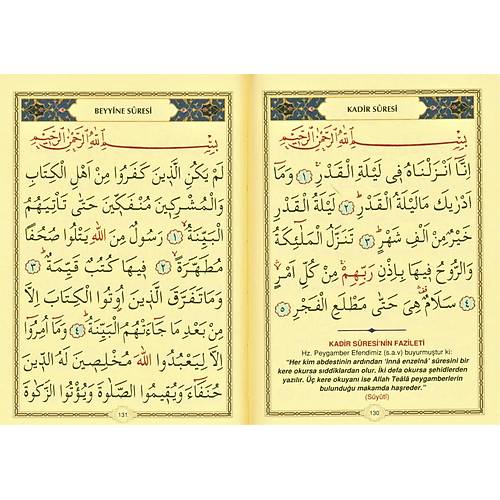 KADİR SÛRESİ
بِسْمِ اللهِ الرَّحْمٰنِ الرَّحِيمِ
اِنَّٓا اَنْزَلْنَاهُ فِى لَيْلَةِ الْقَدْرِۚ ﴿١﴾ وَمَٓا
اَدْرٰيكَ مَالَيْلَةُ الْقَدْرِۜ ﴿٢﴾ لَيْلَةُ الْقَدْرِ
خَيْرٌ مِنْ اَلْفِ شَهْرٍۜ ﴿٣﴾ تَنَزَّلُ الْمَلٰٓئِكَةُ
وَالرُّوحُ فِيهَا بِاِذْنِ رَبِّهِمْۚ مِنْ كُلِّ اَمْرٍۙ
﴿٤﴾ سَلَامٌ۠ هِىَ حَتّٰى مَطْلَعِ الْفَجْرِ ﴿٥﴾
KADİR SÛRESİ'NİN FAZİLETİ
Hz. Peygamber Efendimiz (s.a.v) buyurmuştur ki:
"Her kim abdestinin ardından 'innâ enzelnâ' sûresini bir
kere okursa sıddîklardan olur. İki defa okursa şehidlerden
yazılır. Üç kere okuyanı ise Allah Teâlâ peygamberlerin
bulunduğu makamda haşreder."
(Süyûtî)
130
BEYYİNE SÛRESİ
بِسْمِ اللهِ الرَّحْمٰنِ الرَّحِيمِ
لَمْ يَكُنِ الَّذِينَ كَفَرُوا مِنْ اَهْلِ الْكِتَابِ
وَالْمُشْرِكِينَ مُنْفَكِّينَ حَتّٰى تَأْتِيَهُمُ
الْبَيِّنَةُۙ ﴿١﴾ رَسُولٌ مِنَ اللهِ يَتْلُوا صُحُفًا
مُطَهَّرَةًۙ ﴿٢﴾ فِيهَا كُتُبٌ قَيِّمَةٌۜ ﴿٣﴾
وَمَا تَفَرَّقَ الَّذِينَ اُوتُوا الْكِتَابَ اِلَّا
مِنْ بَعْدِ مَا جَٓاءَتْهُمُ الْبَيِّنَةُۜ ﴿٤﴾ وَمَٓا اُمِرُٓوا
اِلَّا لِيَعْبُدُوا اللهَ مُخْلِصِينَ لَهُ الدِّينَ
حُنَفَٓاءَ وَيُقِيمُوا الصَّلٰوةَ وَيُؤْتُوا الزَّكٰوةَ
131